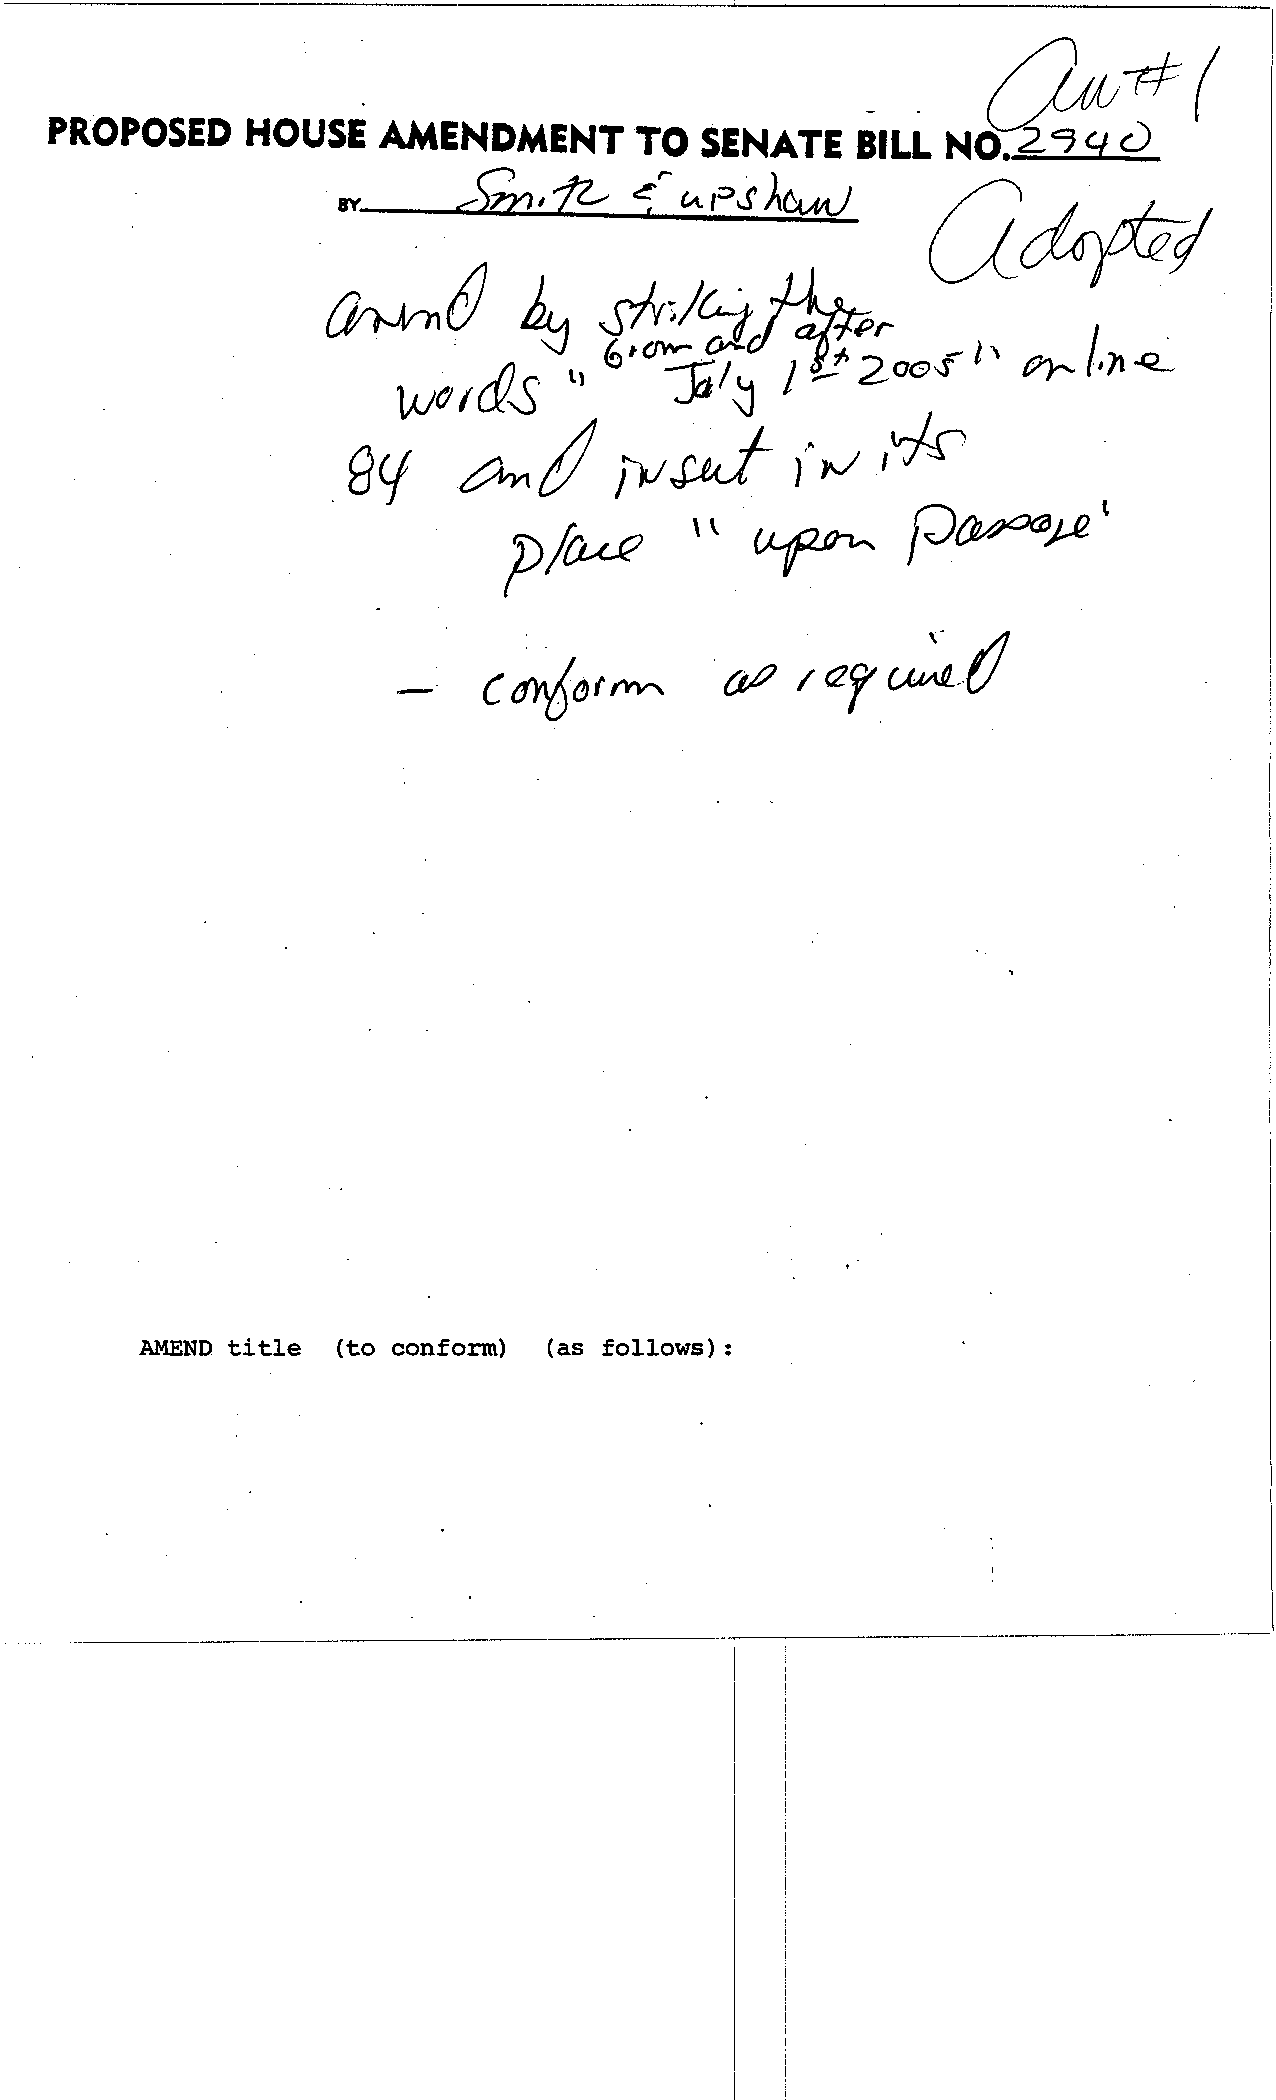 Am #1
PROPOSED HOUSE AMENDMENT TO SENATE BILL NO. 2940
BY Smith & Upshaw
Adopted
amend by striking the
from and after
words " July 1st 2005" on line
84 and insert in its
place "upon passage"
– conform as required
AMEND title (to conform) (as follows):